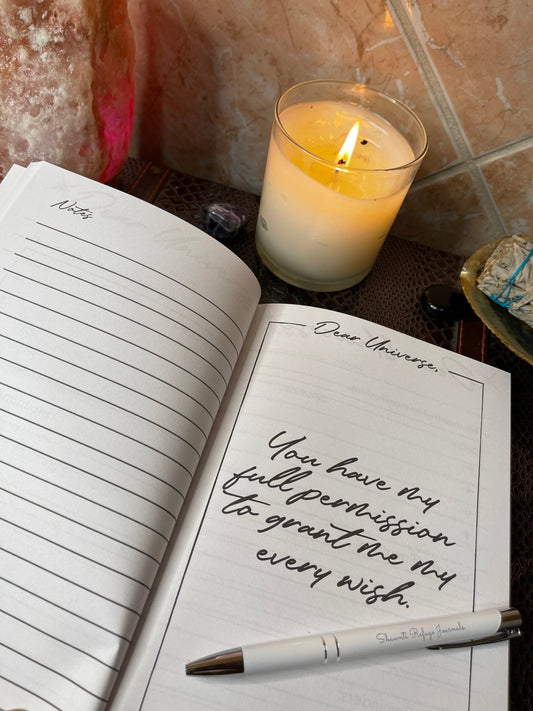 Notes
Dear Universe,
You have my
full permission
to grant me my
every wish.
Shawnti Refuge Journals